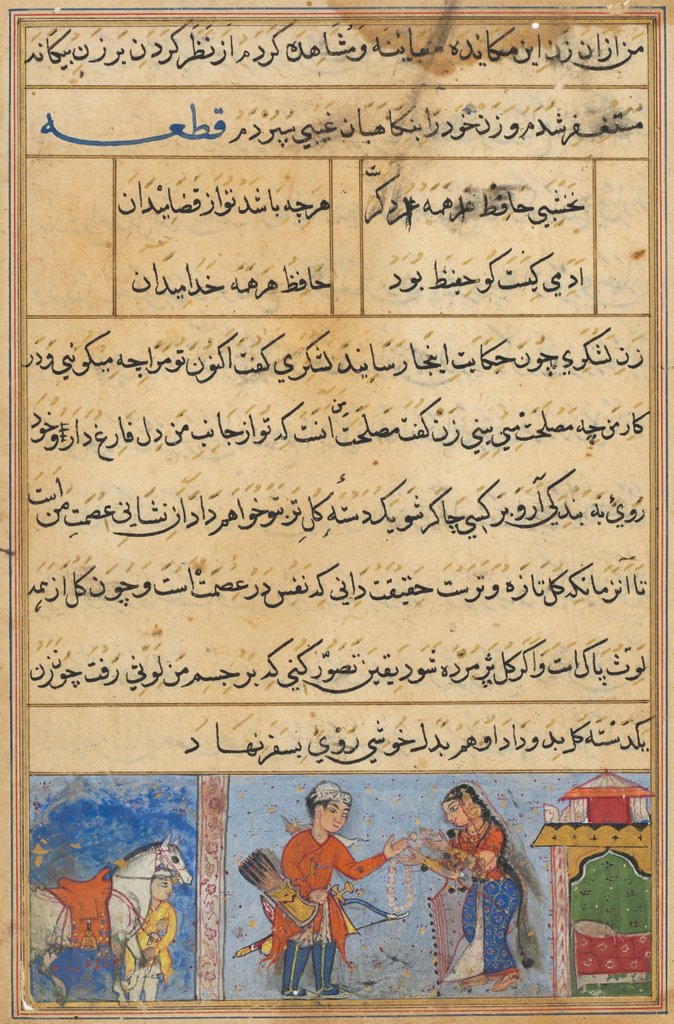 من ازان زن این مکایده معاینه و مشاهده کردم از نظر کردن بر زن بیکانه
مستغفر شدم و زن خود را بنکاهبان غیبی سپردم قطعه
نخشبی حافظ هر همه مرد کر هرچه باشد تو از قضا میدان
ادمی کیست کو حفیظ بود حافظ هر همه خدا میدان
زن لشکری چون حکایت اینجا رسانید لشکری کفت اکنون تو مرا چه میکوئی و در
کار من چه مصلحت می بینی زن کفت مصلحت من آنست که تو از جانب من دل فارغ دار و خود
روی به بندکی آر و بر کسی چاکر شو یک دسته کل تر بتو خواهم داد آن نشانی عصمت من است
تا آنزمانکه کل تازه و ترست حقیقت دانی که نفس در عصمت است و چون کل از همه
لوث پاک است و اکر کل پژمرده شود یقین تصور کنی که بر جسم من لوثی رفت چون زن
یکدسته کل بدو داد او هم بدل خوشی روی بسفر نهاد